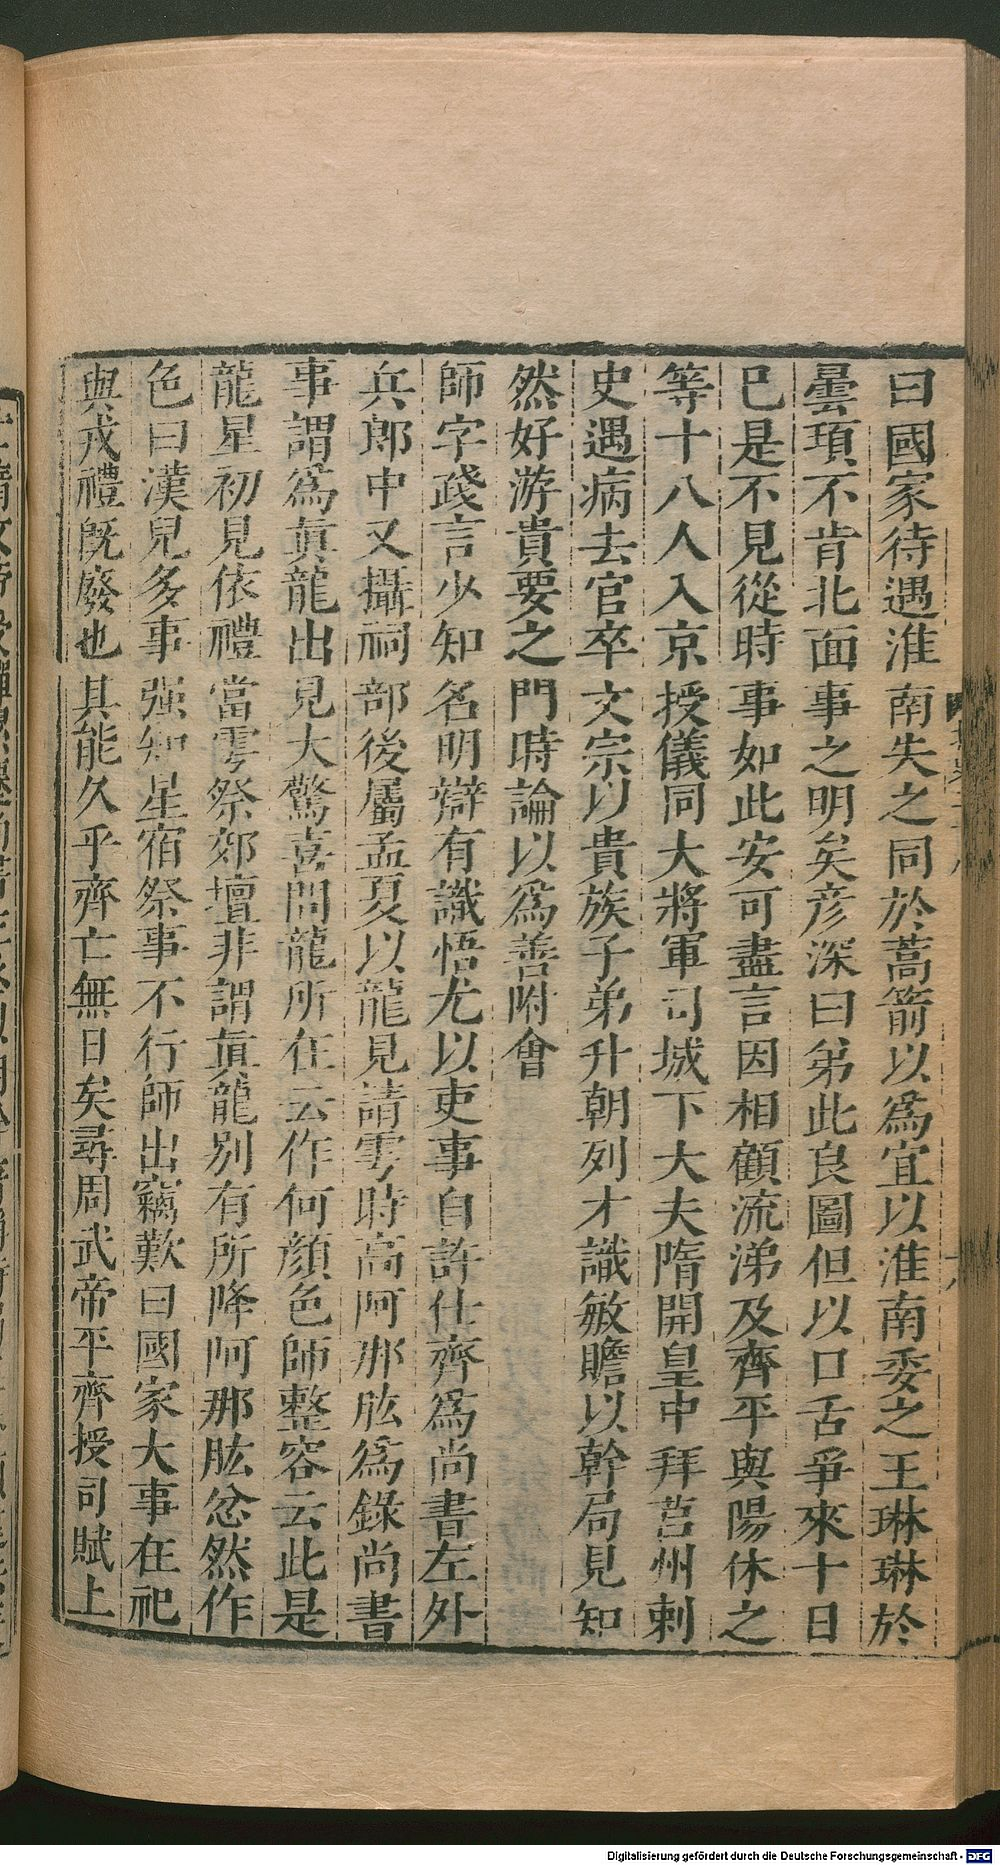 曰國家待遇淮南失之同於蒿箭以爲宜以淮南委之王琳琳於
曇頊不肯北面事之明矣彦深曰弟此良圖但以口舌爭來十日
已是不見從時事如此安可盡言因相顧流涕及齊平與陽休之
等十八人入京授儀同大將軍司城下大夫隋開皇中拜莒州刺
史遇病去官卒文宗以貴族子弟升朝列才識敏贍以幹局見知
然好游貴要之門時論以爲善附會
師字踐言少知名明辯有識悟尤以吏事自許仕齊爲尚書左外
兵郎中又攝祠部後屬孟夏以龍見請雩時高阿那肱爲錄尚書
事謂爲眞龍出見大驚喜問龍所在云作何顏色師整容云此是
龍星初見依禮當雩祭郊壇非謂眞龍別有所降阿那肱忿然作
色曰漢兒多事强知星宿祭事不行師出竊歎曰國家大事在祀
與戎禮旣廢也其能久乎齊亡無日矣尋周武帝平齊授司賦上
Digitalisierung gefördert durch die Deutsche Forschungsgemeinschaft - DFG